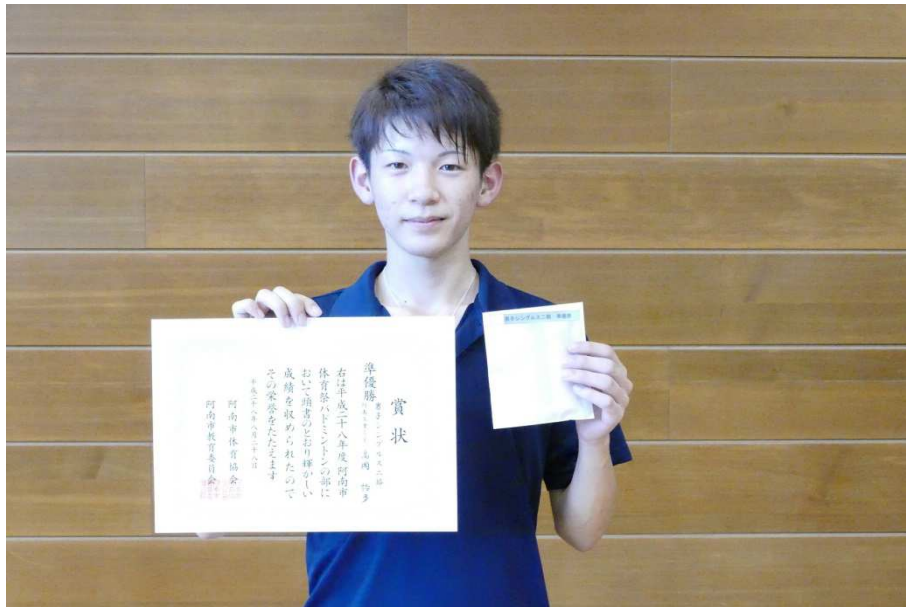 賞状
準優勝
男子シングルス二部
高岡
右は平成二十八年度阿南市
体育祭バドミントンの部に
おいて頭書のとおり輝かしい
成績を収められたので
その栄誉をたたえます
平成二十八年八月二十八日
阿南市体育協会
阿南市教育委員会
男子シングルス二部 準優勝